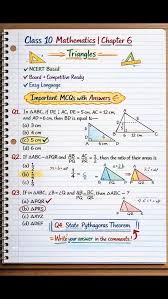 Class 10 Mathematics | Chapter 6
Triangles
✓ NCERT Based
✓ Board + Competitive Ready
✓ Easy Language
Important MCQs with Answers
Q1. In ΔABC, if DE ∥ AC,
and AD = 6cm, then BD is equal to :-
(a) 3 cm
(b) 4 cm
(c) 5 cm ✓
(d) 6 cm
Q2. If ΔABC ~ ΔPQR and AB/PQ = 
, then the ratio of their areas is
(a)
(b)
(c)
(d)
Q3. If in ΔABC, ∠B = ∠Q and AB/PQ = BC/
, then ΔABC ~
(a) ΔPQR
(b) ΔPRS
(c) ΔXYZ
(d) ΔDEF
Q4. State Pythagoras Theorem
Write your answer in the comments!